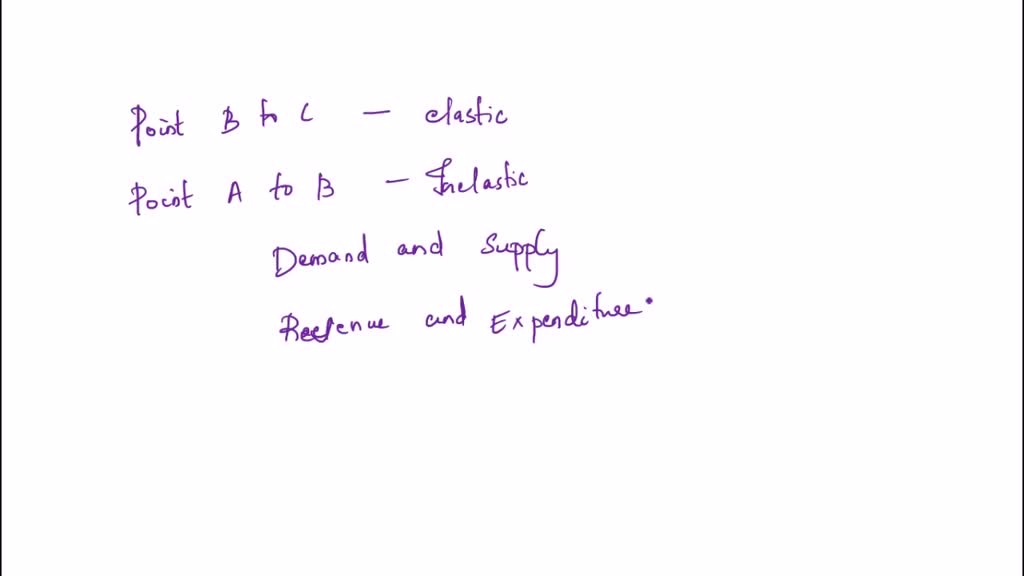 Point B to C - elastic
Point A to B - Inelastic
Demand and Supply
Revenue and Expenditure